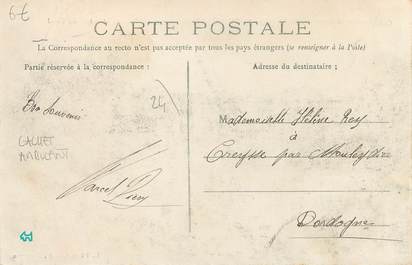 6€
CARTE POSTALE
La Correspondance au recto n'est pas acceptée par tous les pays étrangers (se renseigner à la Poste)
Partie réservée à la correspondance :
Adresse du destinataire ;
24
Bon Souvenir
CACHET
AMBULANT
Marcel
Mademoiselle Hélène Rey
à
Creysse par Mouleydier
Dordogne